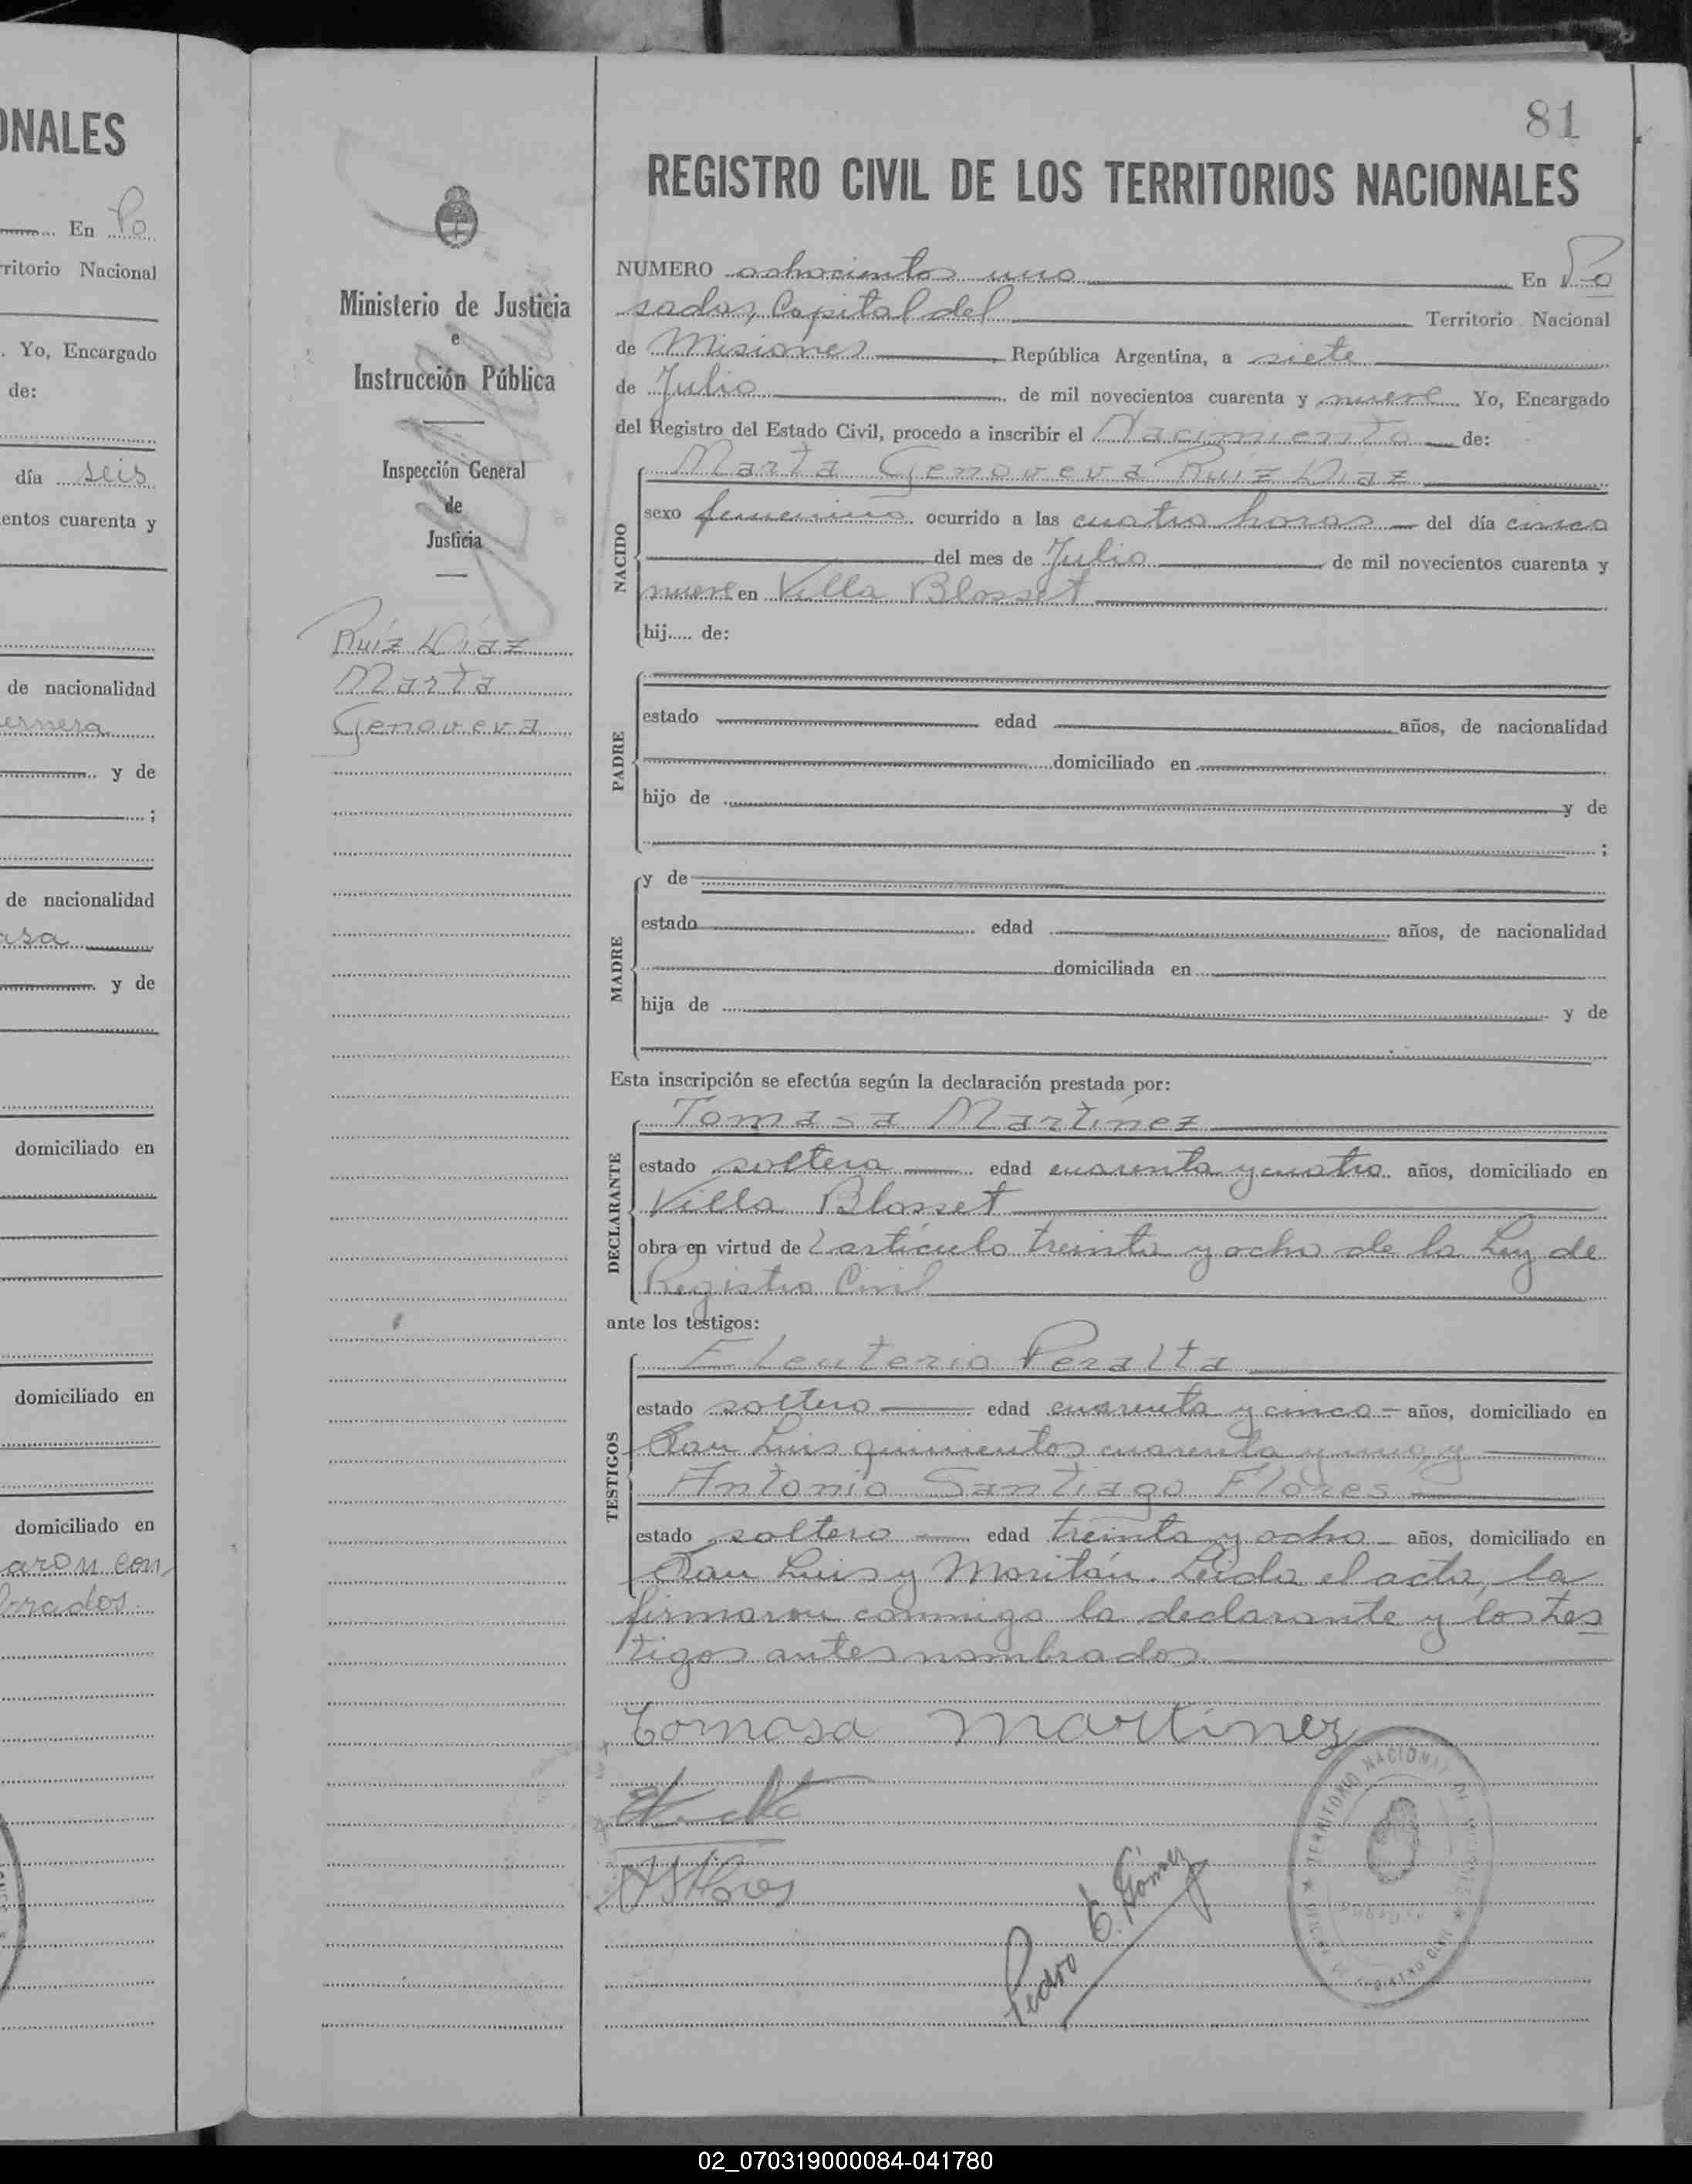 ONALES
En Po
rritorio Nacional
. Yo, Encargado
de:
día seis
entos cuarenta y
de nacionalidad
y de
;
de nacionalidad
y de
domiciliado en
domiciliado en
domiciliado en
aron con
brados.
Ministerio de Justicia
e
Instrucción Pública
Inspección General
de
Justicia
Ruíz Díaz
Marta
Genoveva
81
REGISTRO CIVIL DE LOS TERRITORIOS NACIONALES
NUMERO ochocientos uno En Po
sadas, Capital del Territorio Nacional
de Misiones, República Argentina, a siete
de Julio de mil novecientos cuarenta y nueve Yo, Encargado
del Registro del Estado Civil, procedo a inscribir el Nacimiento de:
NACIDO
Marta Genoveva Ruíz Díaz
sexo femenino ocurrido a las cuatro horas del día cinco
del mes de Julio de mil novecientos cuarenta y
nueve en Villa Blosset
hij..... de:
PADRE
estado edad años, de nacionalidad
domiciliado en
hijo de y de
;
MADRE
y de
estado edad años, de nacionalidad
domiciliada en
hija de y de
Esta inscripción se efectúa según la declaración prestada por:
DECLARANTE
Tomasa Martínez
estado soltera edad cuarenta y cuatro años, domiciliado en
Villa Blosset
obra en virtud de l artículo treinta y ocho de la Ley de
Registro Civil
ante los testigos:
TESTIGOS
Eleuterio Peralta
estado soltero edad cuarenta y cinco años, domiciliado en
San Luis quinientos cuarenta y uno, y
Antonio Santiago Flores
estado soltero edad treinta y ocho años, domiciliado en
San Luis y Moritán. Leída el acta, la
firmaron conmigo la declarante y los tes
tigos antes nombrados
Tomasa Martinez
A S Flores
Pedro E. Gómez
TERRITORIO NACIONAL DE MISIONES
REGISTRO CIVIL
02_070319000084-041780